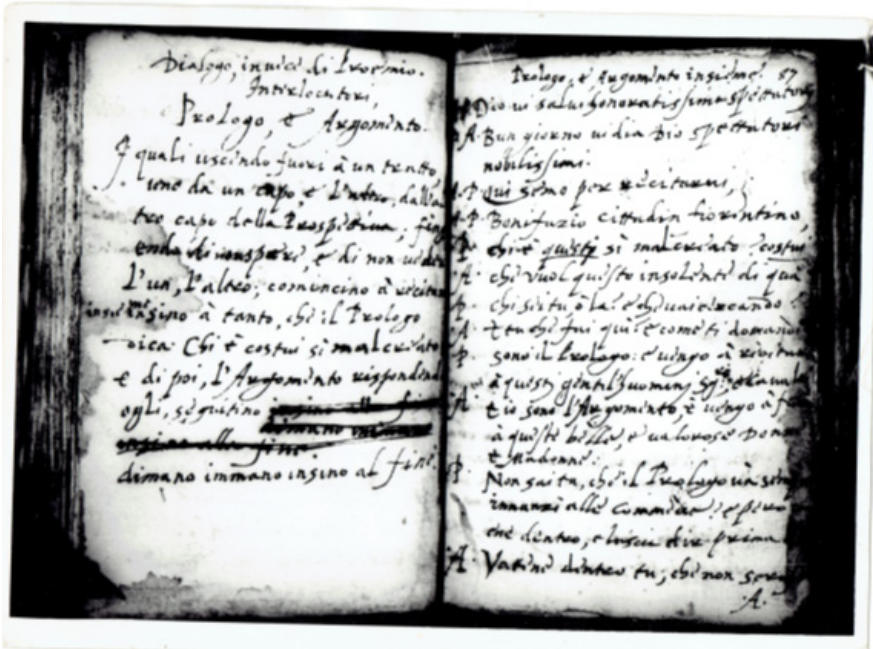 Dialogo, invece di Proemio.
Interlocutori,
Prologo, è Argomento.
I quali uscendo fuori à un tratto,
uno da un capo, e l'altro, dall'al
tro capo della Prospettiva; fing
endo di non sapere, è di non vedere
L'un, l'altro; comincino à recitare
insieme insino à tanto, che il Prologo
dica: Chi è costui sì malcreato
e di poi, l'Argomento rispondend
ogli, seguitino insino alla fi
dimano in
insino alla fine
dimano immano insino al fine.
Prologo, è Argomento insieme. 87
P. Dio vi salvi honoratissimi spettatori
A. Bun giorno vi dia Dio spettatori
nobilissimi.
A. P. Qui semo per recitarvi,
A. P. Bonifazio cittadin fiorentino,
P. chi è questi sì malcreato costui
A. che vuol questo insolente di quà
P. chi sei tu, ò là? e che vai cercando?
A. E tu che fai qui? e come ti domandi
P. sono il Prologo: e vengo à recitare
à questi gentilhuominj
A. E io sono l'Argomento, è vengo à
à queste belle, e valorose Donne
è Madonne.
P. Non sai tu, che il Prologo và sempre
innanzi alle Commedie? e però
dentro, e lascia dir prima
A. Vatene dentro tu, che non
A.